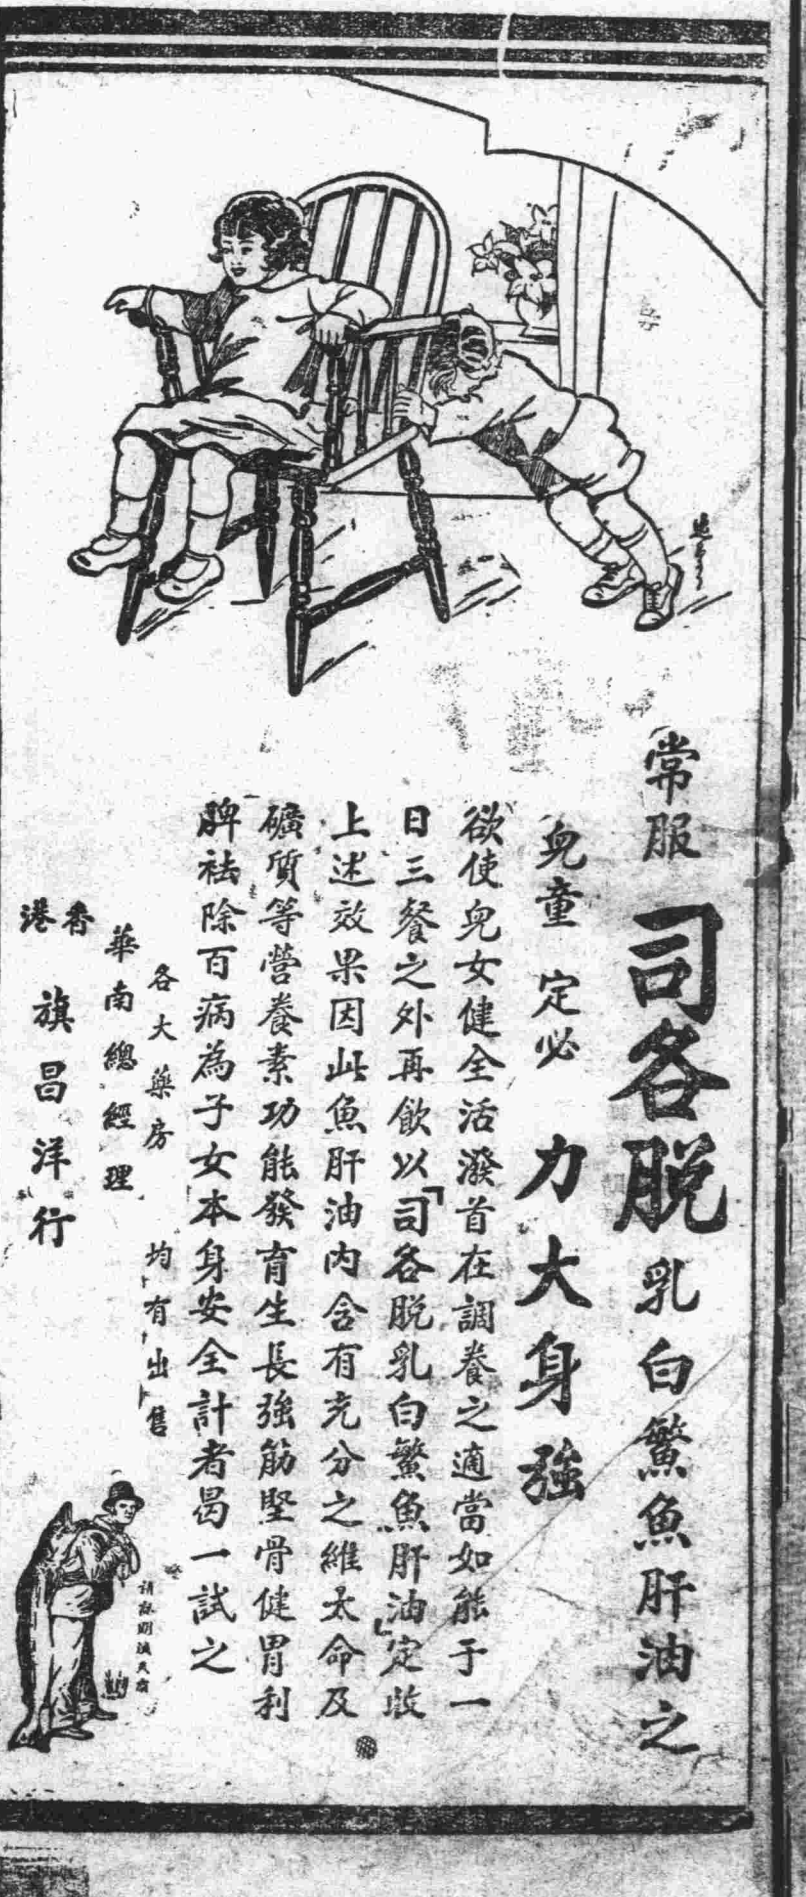 常服司各脱乳白鱉魚肝油之
兒童定必力大身強
欲使兒女健全活潑首在調養之適當如能于一
日三餐之外再飲以「司各脱乳白鱉魚肝油」定收
上述效果因此魚肝油內含有充分之維太命及
礦質等營養素功能發育生長強筋堅骨健胃利
脾袪除百病為子女本身安全計者曷一試之
各大藥房均有出售
華南總經理
香港旗昌洋行